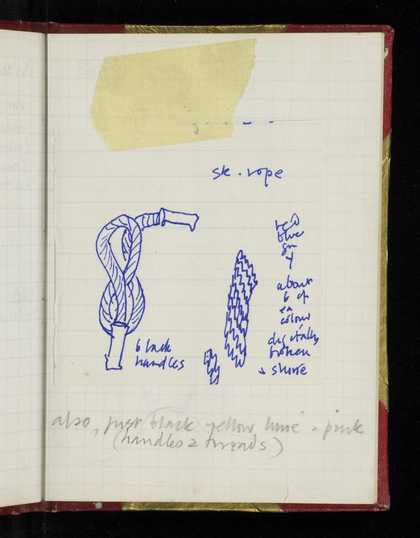 sk. rope
red
blue
gn
y
about
6 of
ea
colour
digitally
broken
black
handles
+ shine
also, just black yellow lime + pink
(handles & threads)